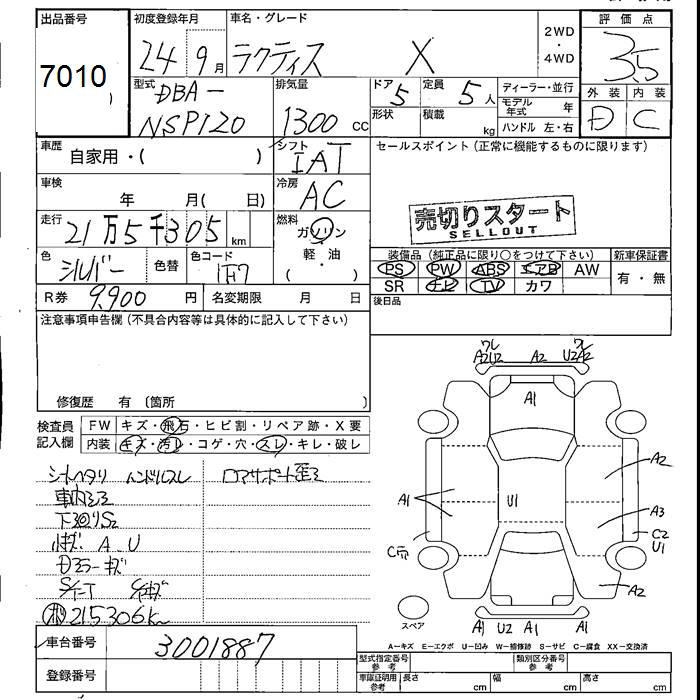 出品番号
7010
初度登録年月
24 9月
車名・グレード
ラクティス X
2WD
・
4WD
評価点
3.5
外装 内装
D C
型式
DBA-
NSP120
排気量
1300 CC
ドア 5
定員 5人
形状
積載 kg
ディーラー・並行
モデル年式 年
ハンドル 左・右
車歴
自家用・( )
シフト
IAT
車検
年 月( 日)
冷房
AC
走行
21万5千305 km
燃料
ガソリン
軽・油
( )
色
シルバー
色替
色コード
1F7
R券 9,900 円
名変期限 月 日
セールスポイント (正常に機能するものに限ります)
売切りスタート
SELLOUT
装備品 (純正品に限り○をつけて下さい)
PS PW ABS エアB AW
SR ナビ TV カワ
新車保証書
有・無
後日品
注意事項申告欄 (不具合内容等は具体的に記入して下さい)
修復歴 有 〔箇所 〕
検査員
記入欄
FW キズ・飛石・ヒビ割・リペア跡・X要
内装 キズ・汚レ・コゲ・穴・スレ・キレ・破レ
シートヘタリ ハンドルスレ
ロアサポート歪ミ
車内シミ
下廻りS2
小キズ A U
Dミラーキズ
215306km
車台番号
3001887
登録番号
ワレ
A2U2 A2 U2A2
ワレ
A1
A1
U1
A2
A3
C2
U1
A2
スペア
A1 U2 A1 A1
A-キズ E-エクボ U-凹み W-補修跡 S-サビ C-腐食 XX-交換済
型式指定番号
参考
類別区分番号
参考
車庫証明用
参考
長さ cm
幅 cm
高さ cm